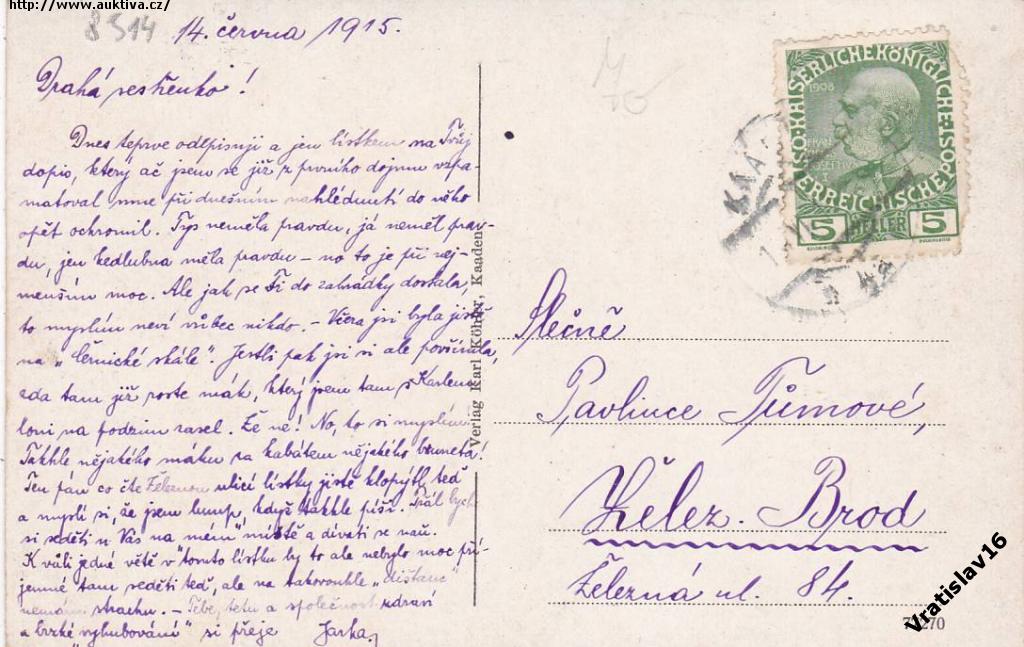 http://www.auktiva.cz/
8514
14. června 1915.
Drahá sestřenko!
Dnes teprve odepisuji a jen lístkem na Tvůj
dopis, který ač jsem se již z prvního dojmu vzpa-
matoval mne při dnešním nahlédnutí do něho
opět ochromil. Tys neměla pravdu, já neměl prav-
du, jen kedlubna měla pravdu – no to je při nej-
menším moc. Ale jak se Ti do zahrádky dostala
to myslím neví vůbec nikdo. – Včera jsi byla jistě
na „ skále". Jestli pak jsi si ale povšimla,
zda tam již roste mák, který jsem tam s Karlem
loni na podzim zasel. Že né! No, to si myslím
Takhle nějakého máku za kabátem nějakého bruneta.
Ten pán co čte Železnou ulicí lístky jistě klopýtl teď
a myslí si, že jsem lump, když takhle píši. Přál bych
si seděti u Vás na mém místě a dívati se naň.
K vůli jedné větě v tomto lístku by to ale nebylo moc pří-
jemné tam seděti teď, ale na takovouhle „distanc"
nemám strachu. – Tebe, tetu a společnost zdraví
a brzké „vyhubování" si přeje Jarka
Verlag Karl Köhler, Kaaden
KAISERLICHE KÖNIGLICHE
ÖSTERREICHISCHE POST
1908
5 HELLER 5
KAA
Slečně
Pavlince Tůmové,
Želez. Brod
Železná ul. 84.
270
Vratislav16